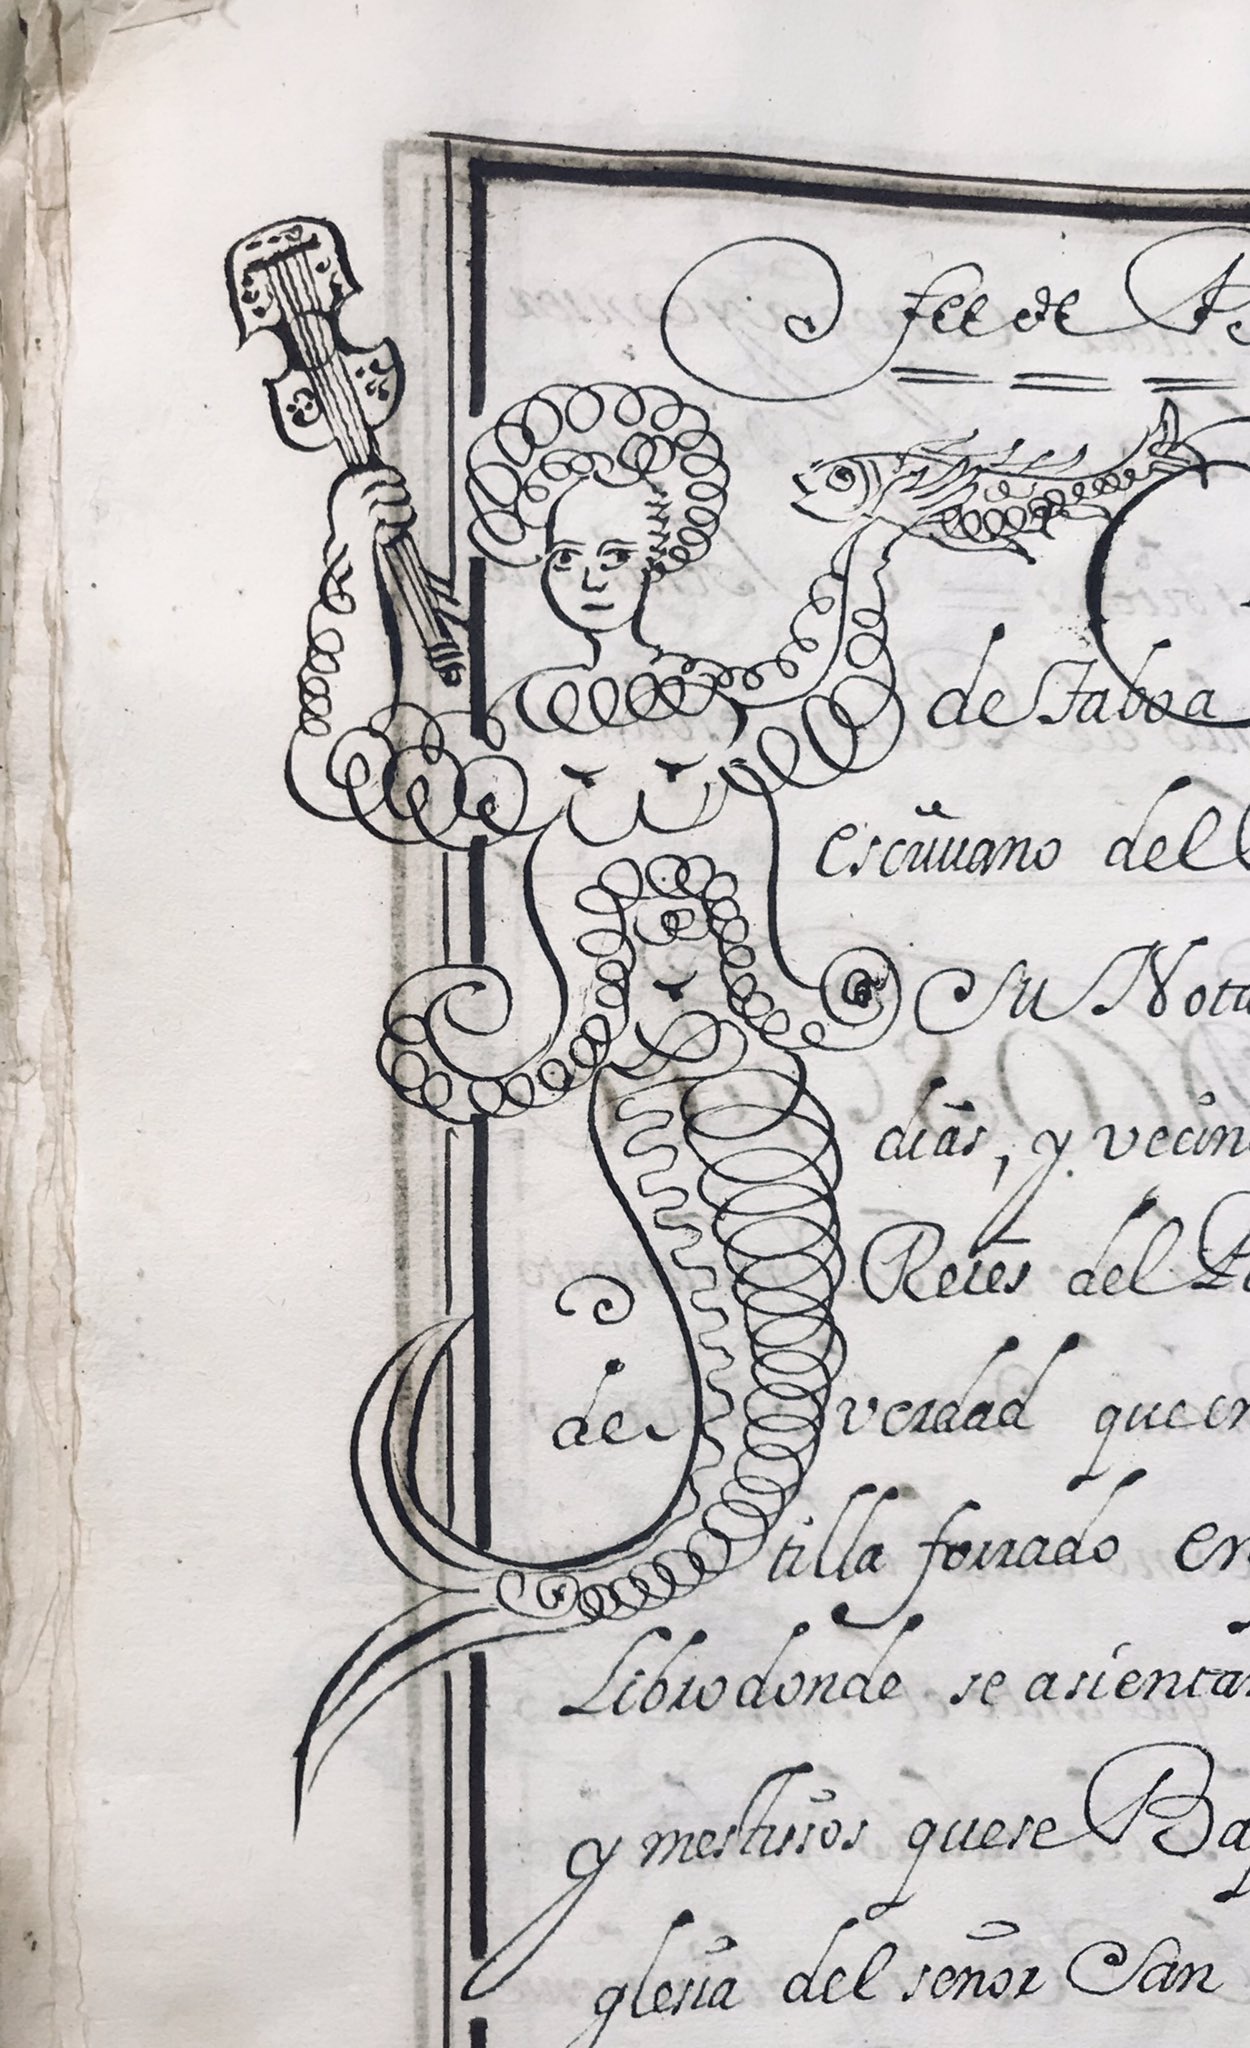 fee de
de Taboa
escriuano del
Su Nota
dias, y vecin
Reies del
de verdad que en
tilla forrado en
Libro donde se asientan
y mestissos que se Ba
glesia del señor San